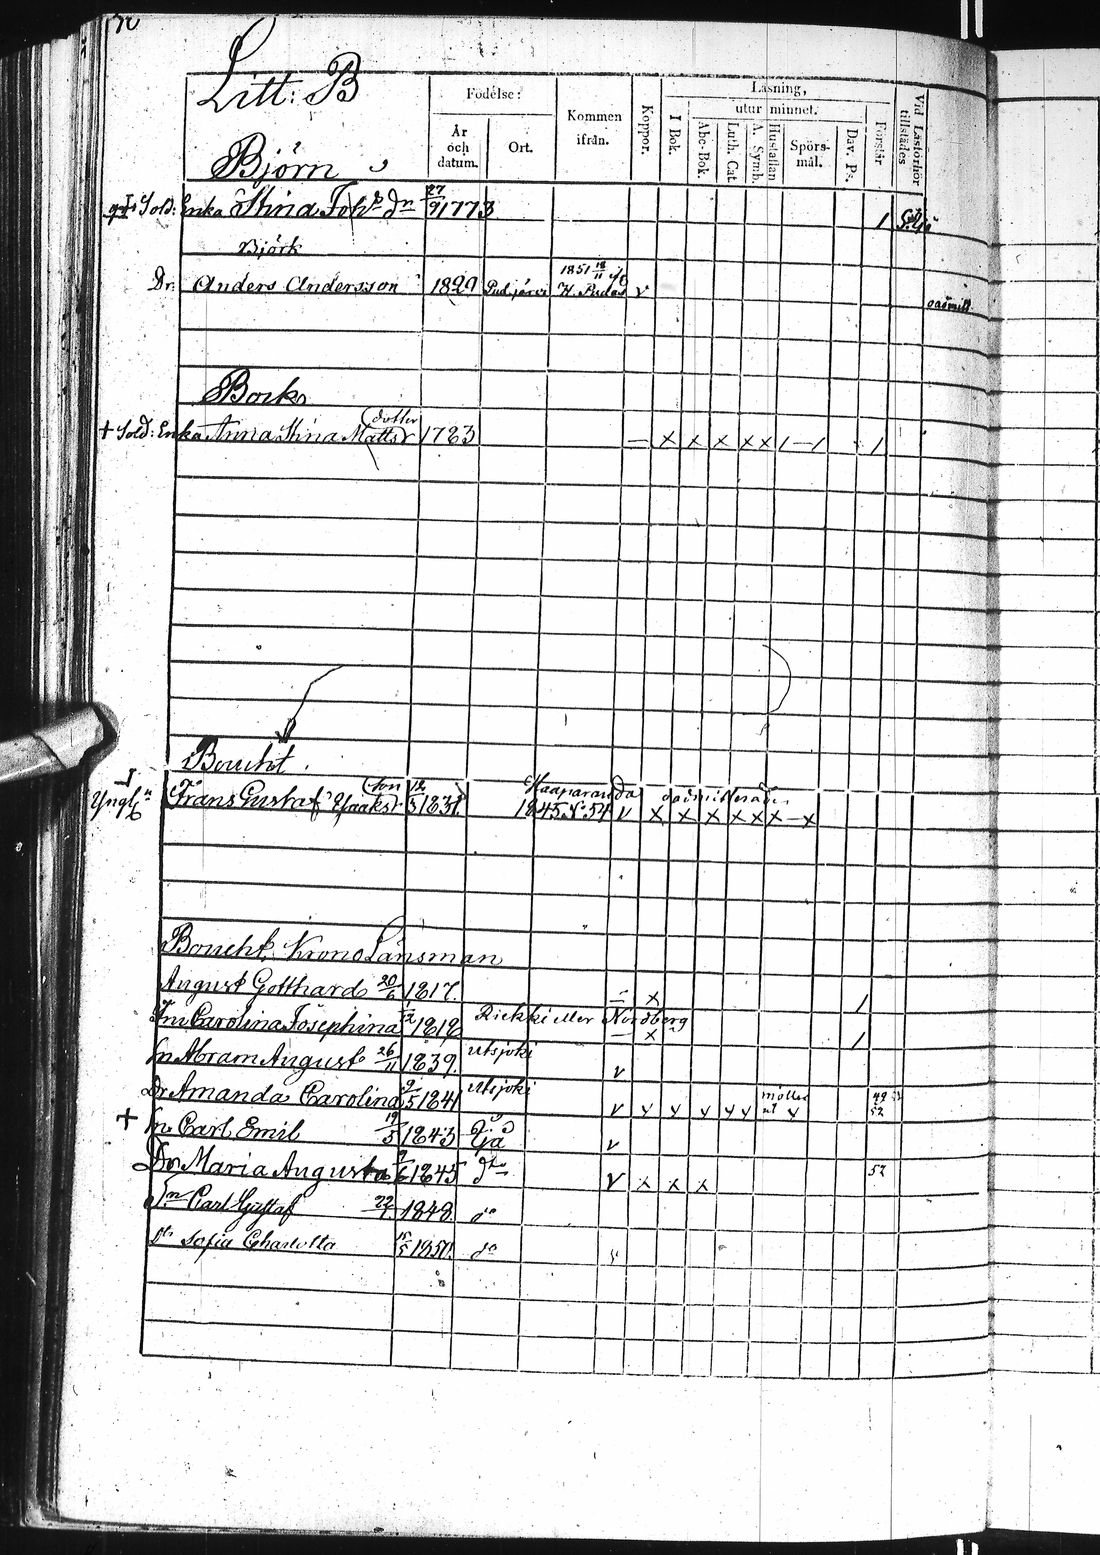 Litt: B
Födelse:
År och datum.
Ort.
Kommen ifrån.
Koppor.
Läsning,
utur minnet.
I Bok.
Abc-Bok.
Luth. Cat.
A. Symb.
Hustaflan
Spörs-mål.
Dav. Ps.
Förstår
Vid Läsförhör tillstädes
Björn
Sold: Enka Stina Joh dr 27/9 1773 1
Björk
Dr. Anders Andersson 1829 Pudjärvi 1851 18/11 N. Pudas v
oadmitt
Bock
+ Sold: Enka Anna Stina Matts dotter 1783 — x x x x x / — / 1
Boucht
Yngl. Frans Gustaf Isaaks son 12/3 1831. Haaparanda 1845 N 54 v x x x x x x — x
Boucht, Krono Länsman
August Gotthard 20/6 1817. — x 1
Carolina Josephina 1818 Riekki eller Nordberg — x 1
Sn Abram August 26/11 1839. Utsjoki v
Dr Amanda Carolina 9/5 1841 Utsjoki v v v v v v v 52
+ Sn Carl Emil 19/5 1843 Ijå v
Dr Maria Augusta 1845 do v x x x 52
Sn Carl Gustaf 22/7 1848. do
Dr Sofia Charlotta 15/5 1850. do